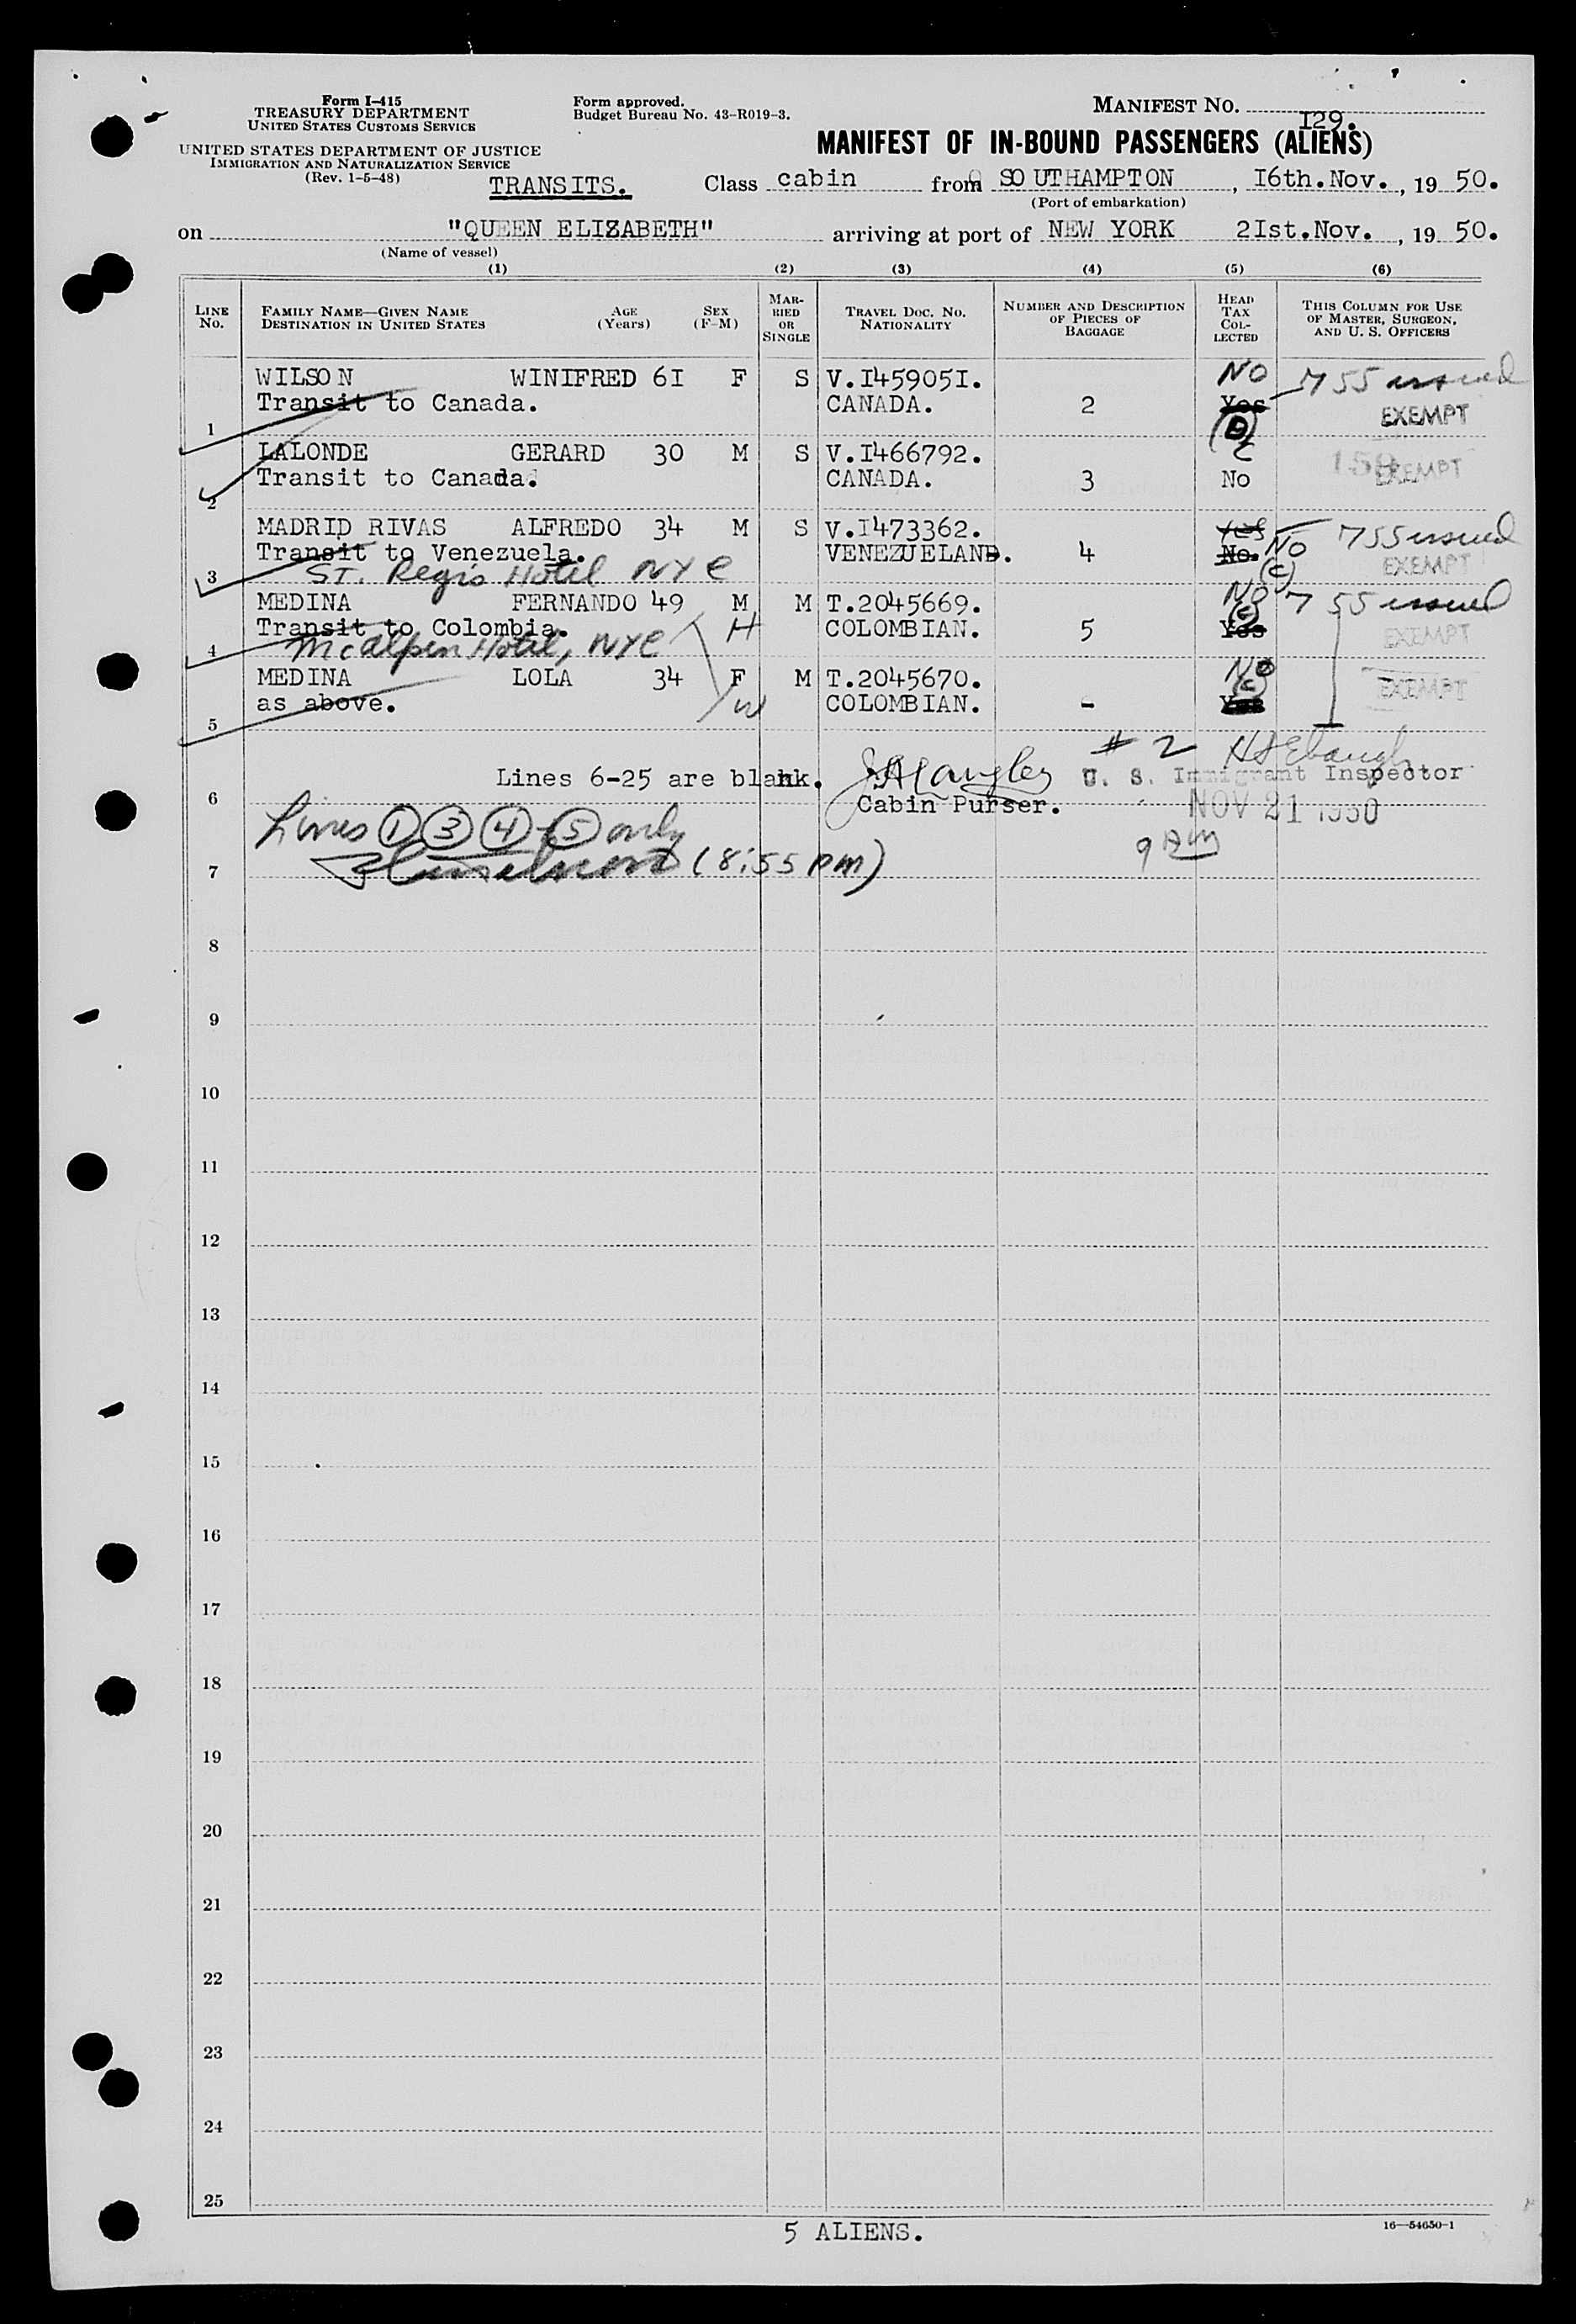 Form I-415
TREASURY DEPARTMENT
UNITED STATES CUSTOMS SERVICE
UNITED STATES DEPARTMENT OF JUSTICE
IMMIGRATION AND NATURALIZATION SERVICE
(Rev. 1-5-48)
Form approved.
Budget Bureau No. 43-R019-3.
MANIFEST NO.
I29.
MANIFEST OF IN-BOUND PASSENGERS (ALIENS)
TRANSITS. Class cabin from SOUTHAMPTON, I6th.Nov., 19 50.
(Port of embarkation)
on "QUEEN ELIZABETH" arriving at port of NEW YORK 2Ist.Nov., 19 50.
(Name of vessel)
(1) (2) (3) (4) (5) (6)
LINE NO. FAMILY NAME—GIVEN NAME DESTINATION IN UNITED STATES AGE (Years) SEX (F-M) MARRIED OR SINGLE TRAVEL DOC. NO. NATIONALITY NUMBER AND DESCRIPTION OF PIECES OF BAGGAGE HEAD TAX COLLECTED THIS COLUMN FOR USE OF MASTER, SURGEON, AND U. S. OFFICERS
WILSON WINIFRED 6I F S V.I45905I. No 755 issued
1 Transit to Canada. CANADA. 2 Yes EXEMPT
(B)
LALONDE GERARD 30 M S V.I466792. C
2 Transit to Canada. CANADA. 3 No EXEMPT
MADRID RIVAS ALFREDO 34 M S V.I473362. Yes 755 issued
3 Transit to Venezuela. VENEZUELAND. 4 No. No EXEMPT
St. Regis Hotel NYC (C)
MEDINA FERNANDO 49 M M T.2045669. No 755 issued
4 Transit to Colombia. H COLOMBIAN. 5 (C) Yes EXEMPT
McAlpin Hotel, NYC
MEDINA LOLA 34 F M T.2045670. No
5 as above. W COLOMBIAN. - (C) Yes EXEMPT
# 2
6 Lines 6-25 are blank. U. S. Immigrant Inspector
Cabin Purser. NOV 21 1950
Lines 1 3 4 + 5 only 9 AM
7 (8:55 pm)
8
9
10
11
12
13
14
15
16
17
18
19
20
21
22
23
24
25
5 ALIENS.
16—54650-1